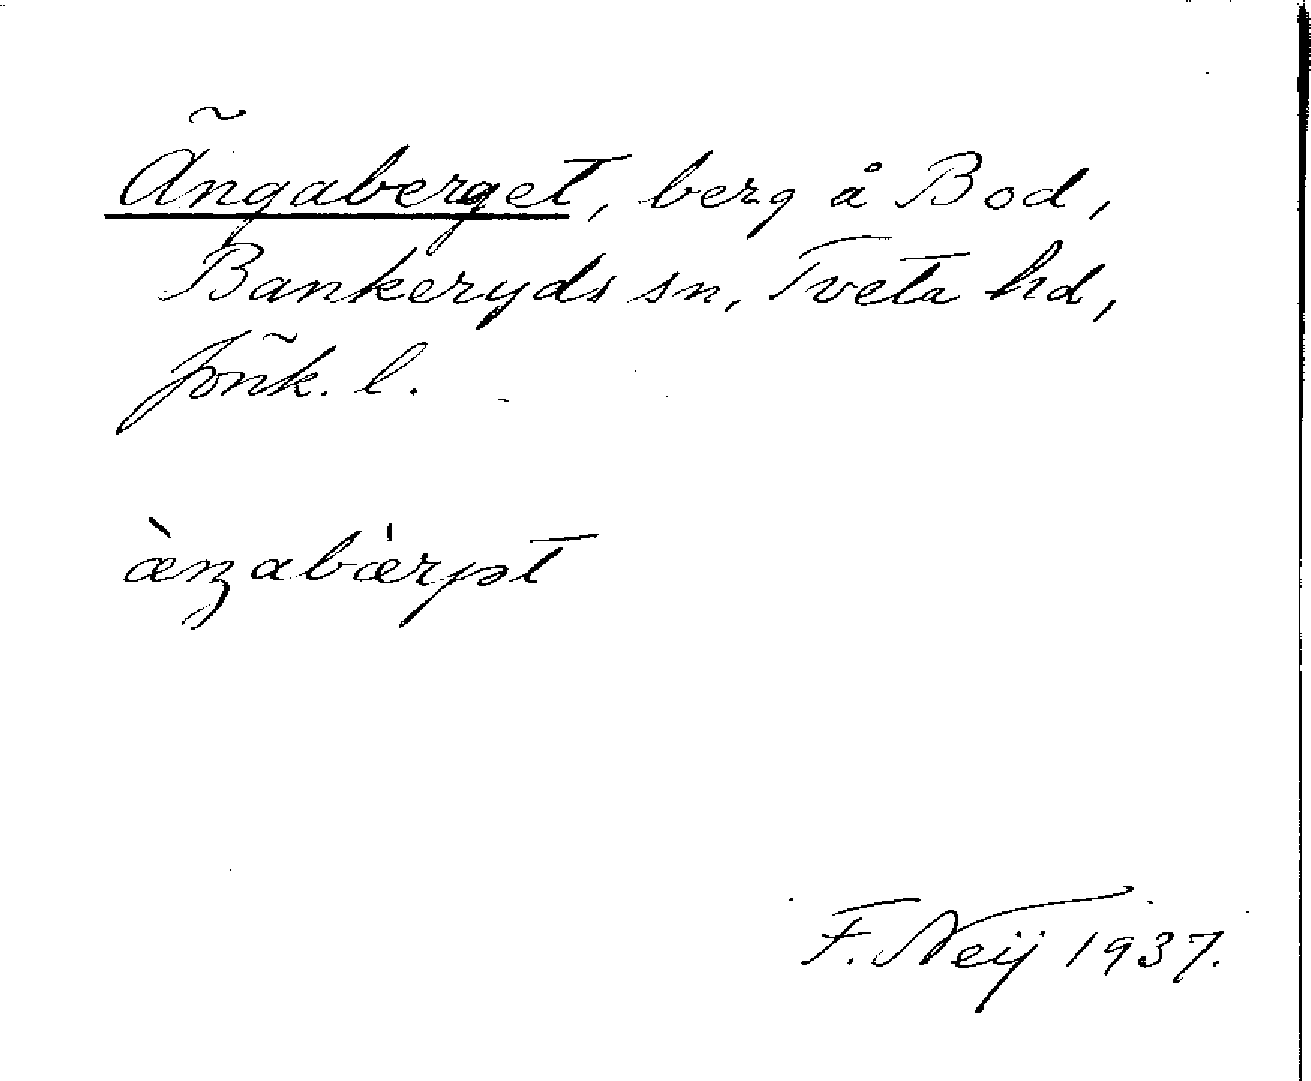 Ängaberget, berg å Bod,
Bankeryds sn, Tveta hd,
Jönk. l.
æ̀ŋabǽrjət
F. Neij 1937.